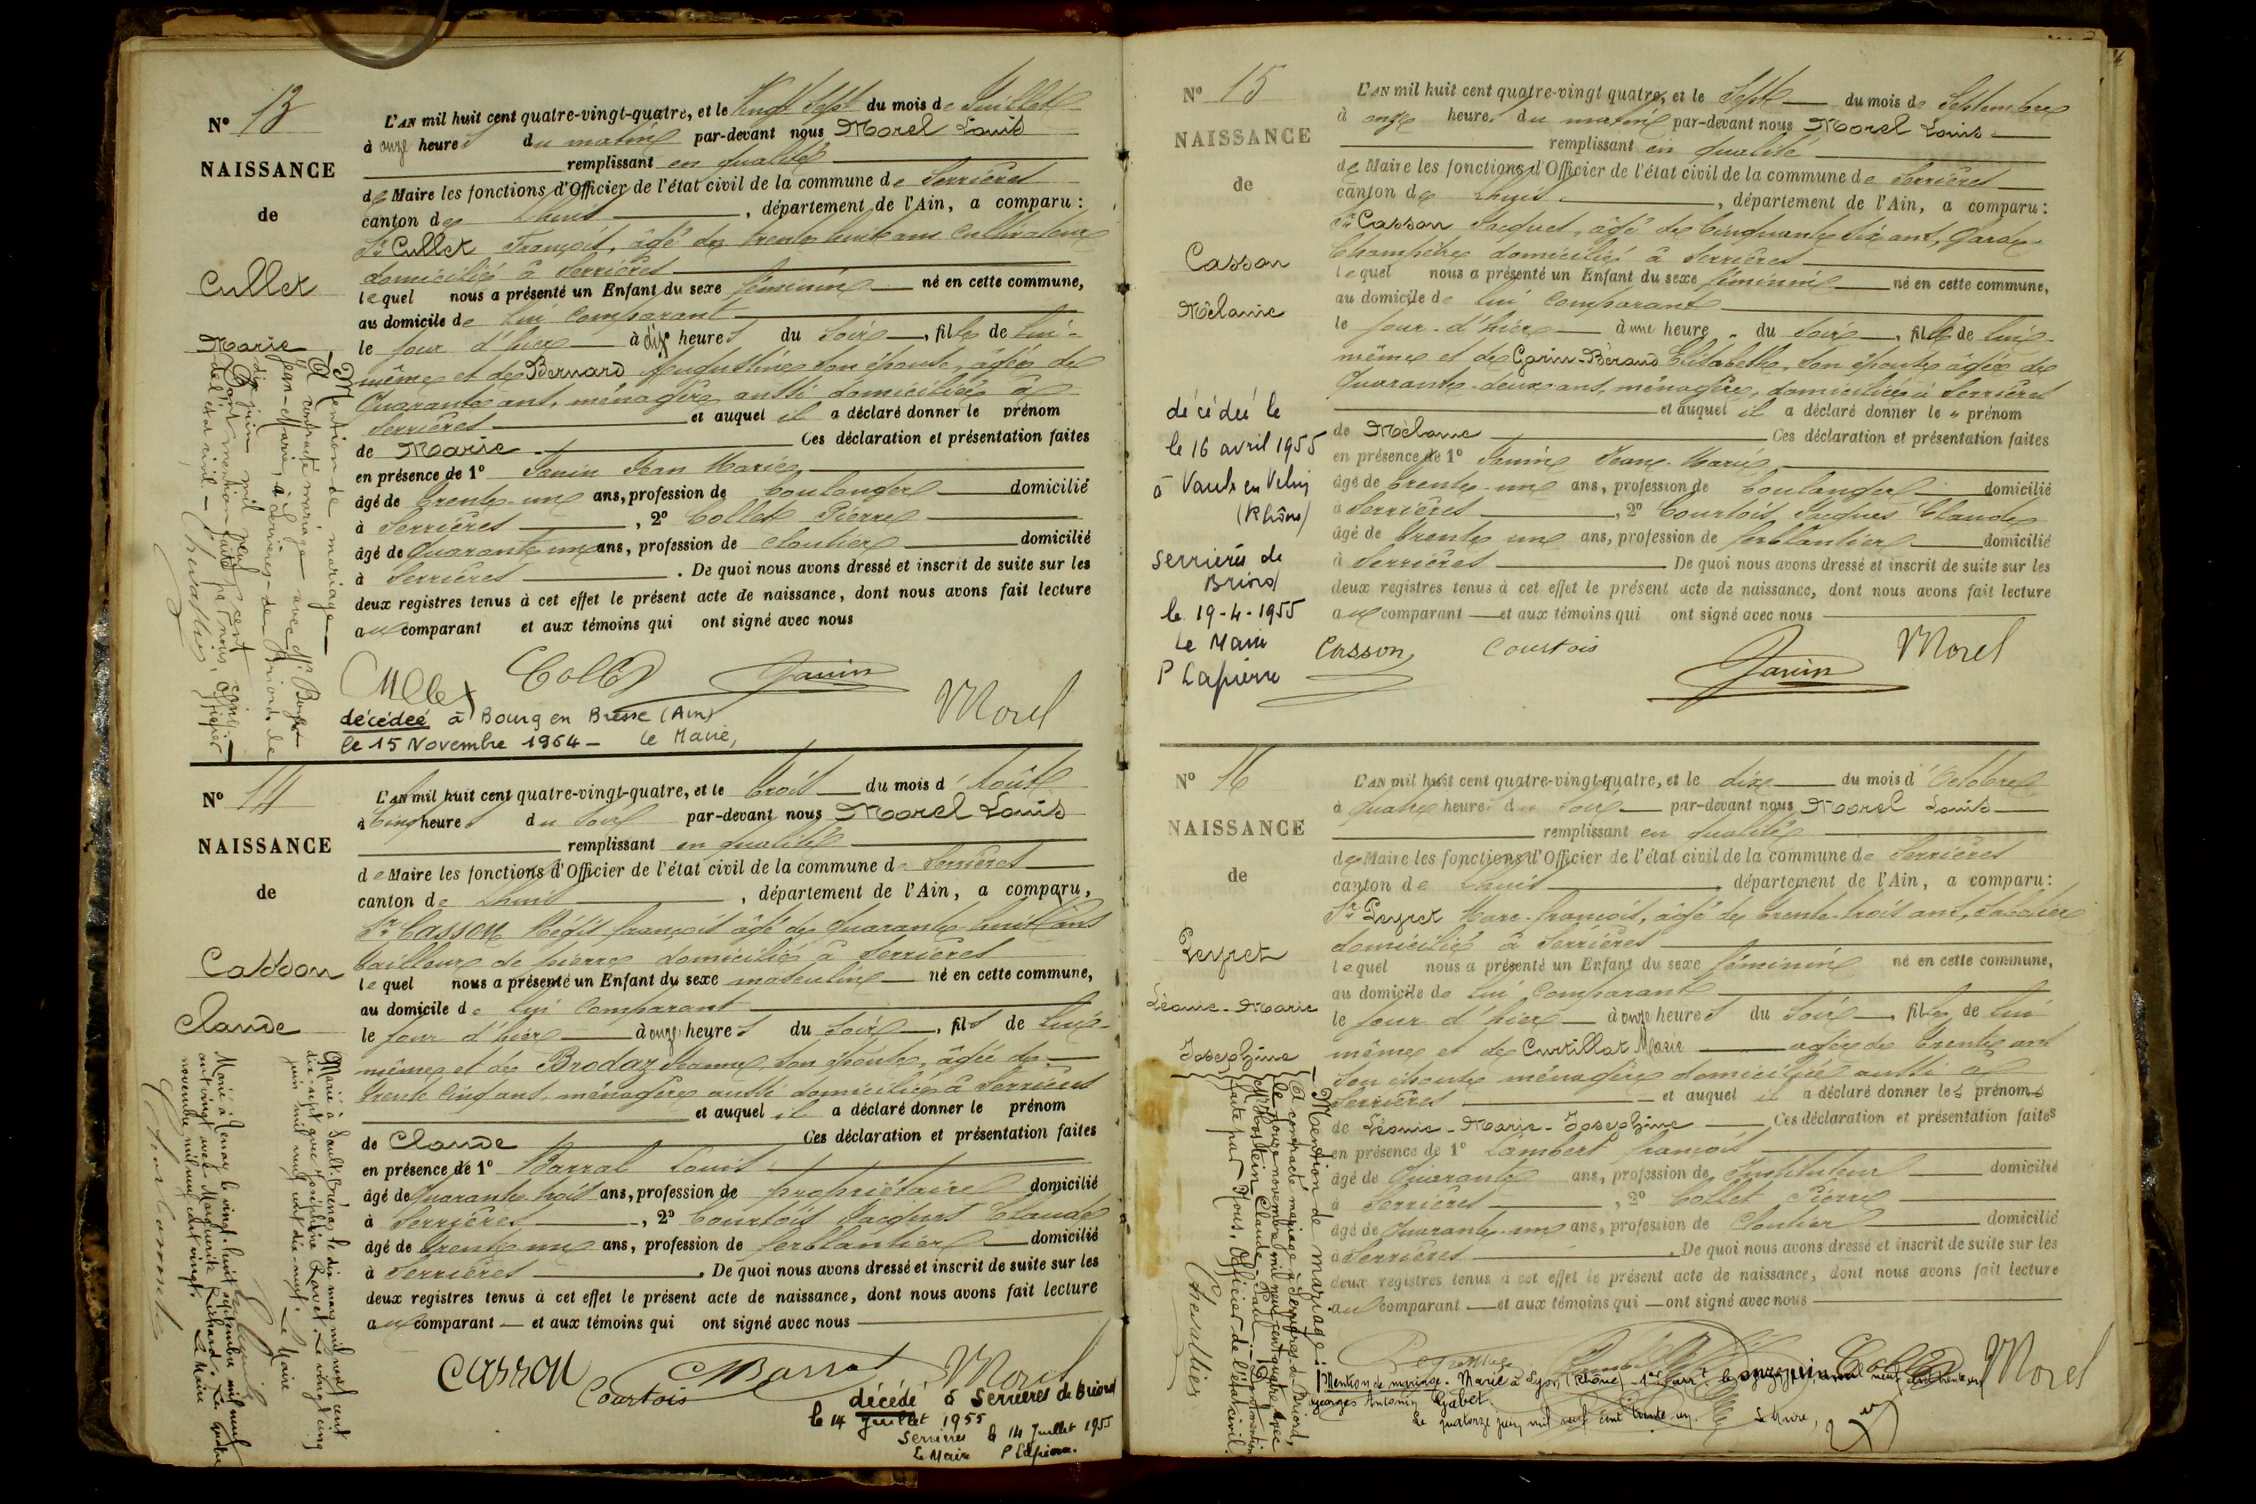 N° 13
NAISSANCE
de
Cullet
Marie
L'AN mil huit cent quatre-vingt-quatre, et le Vingt Sept du mois de Juillet
à onze heures du matin par-devant nous Morel Louis
remplissant en qualité
de Maire les fonctions d'Officier de l'état civil de la commune de Serrières
canton de Lhuis, département de l'Ain, a comparu :
Sr Cullet François, âgé de trente huit ans Cultivateur
domicilié à Serrières
lequel nous a présenté un Enfant du sexe féminin né en cette commune,
au domicile de lui Comparant
le jour d'hier à dix heures du Soir, fille de lui-
même et de Bernard Augustine son épouse, âgée de
Quarante ans, ménagère aussi domiciliée à
Serrières et auquel il a déclaré donner le prénom
de Marie Ces déclaration et présentation faites
en présence de 1° Janin Jean Marie
âgé de trente-un ans, profession de boulanger domicilié
à Serrières, 2° Collet Pierre
âgé de Quarante un ans, profession de cloutier domicilié
à Serrières. De quoi nous avons dressé et inscrit de suite sur les
deux registres tenus à cet effet le présent acte de naissance, dont nous avons fait lecture
au comparant et aux témoins qui ont signé avec nous
Cullet Collet Janin Morel
décédée à Bourg en Bresse (Ain)
le 15 Novembre 1964 - Le Maire,
Mention de mariage
A contracté mariage avec Mr
Jean-Marie, à Serrières-de-Briord, le
dix juin mil neuf cent
Dont mention faite par nous, officier
de l'état civil - Chevallier
N° 14
NAISSANCE
de
Casson
Claude
L'AN mil huit cent quatre-vingt-quatre, et le trois du mois d'Août
à Cinq heures du Soir par-devant nous Morel Louis
remplissant en qualité
de Maire les fonctions d'Officier de l'état civil de la commune de Serrières
canton de Lhuis, département de l'Ain, a comparu,
Sr Casson Régis françois âgé de quarante huit ans
tailleur de pierre domicilié à Serrières
lequel nous a présenté un Enfant du sexe masculin né en cette commune,
au domicile de lui Comparant
le jour d'hier à onze heures du Soir, fils de lui-
même et de Brodaz Jeanne, son épouse, âgée de
trente Cinq ans, ménagère aussi domiciliée à Serrières
et auquel il a déclaré donner le prénom
de Claude Ces déclaration et présentation faites
en présence de 1° Barral Louis
âgé de Quarante trois ans, profession de propriétaire domicilié
à Serrières, 2° Courtois Jacques Claude
âgé de trente un ans, profession de ferblantier domicilié
à Serrières. De quoi nous avons dressé et inscrit de suite sur les
deux registres tenus à cet effet le présent acte de naissance, dont nous avons fait lecture
au comparant et aux témoins qui ont signé avec nous
Casson Barral Morel
Courtois
décédé à Serrières de Briord
le 14 Juillet 1955
Serrières le 14 Juillet 1955
Le Maire P Lapierre.
Marié à Sault-Brénaz le dix mars mil neuf cent
dix-sept avec Joséphine Ravet. Le vingt cinq
juin mil neuf cent dix neuf. Le Maire
Marié à Tenay le vingt-huit septembre mil neuf
cent vingt avec Marguerite Richard. Le quatre
novembre mil neuf cent vingt. Le Maire
N° 15
NAISSANCE
de
Casson
Mélanie
L'AN mil huit cent quatre-vingt quatre, et le Sept du mois de Septembre
à onze heures du matin par-devant nous Morel Louis
remplissant en qualité
de Maire les fonctions d'Officier de l'état civil de la commune de Serrières
canton de Lhuis, département de l'Ain, a comparu :
Sr Casson Jacques, âgé de Cinquante six ans, Garde-
Champêtre domicilié à Serrières
lequel nous a présenté un Enfant du sexe féminin né en cette commune,
au domicile de lui Comparant
le jour-d'hier à une heure du Soir, fille de lui-
même et de Garin-Béraud Elisabeth, son épouse âgée de
Quarante-deux ans, ménagère, domiciliée à Serrières
et auquel il a déclaré donner le prénom
de Mélanie Ces déclaration et présentation faites
en présence de 1° Janin Jean-Marie
âgé de trente-un ans, profession de boulanger domicilié
à Serrières, 2° Courtois Jacques Claude
âgé de trente un ans, profession de ferblantier domicilié
à Serrières De quoi nous avons dressé et inscrit de suite sur les
deux registres tenus à cet effet le présent acte de naissance, dont nous avons fait lecture
au comparant et aux témoins qui ont signé avec nous
Casson Courtois Janin Morel
décédée le
le 16 avril 1955
à Vaulx en Velin
(Rhône)
Serrières de
Briord
le 19-4-1955
Le Maire
P Lapierre
N° 16
NAISSANCE
de
Peyret
Léonie-Marie
Joséphine
L'AN mil huit cent quatre-vingt-quatre, et le dix du mois d'Octobre
à quatre heures du Soir par-devant nous Morel Louis
remplissant en qualité
de Maire les fonctions d'Officier de l'état civil de la commune de Serrières
canton de Lhuis, département de l'Ain, a comparu :
Sr Peyret Marc-françois, âgé de trente-trois ans,
domicilié à Serrières
lequel nous a présenté un Enfant du sexe féminin né en cette commune,
au domicile de lui Comparant
le jour d'hier à onze heures du Soir, fille de lui
même et de Curtillat Marie âgée de trente ans
son épouse ménagère domiciliée aussi à
Serrières et auquel il a déclaré donner les prénoms
de Léonie-Marie-Joséphine Ces déclaration et présentation faites
en présence de 1° Lambert françois
âgé de Quarante ans, profession de Instituteur domicilié
à Serrières, 2° Collet Pierre
âgé de Quarante-un ans, profession de Cloutier domicilié
à Serrières. De quoi nous avons dressé et inscrit de suite sur les
deux registres tenus à cet effet le présent acte de naissance, dont nous avons fait lecture
au comparant et aux témoins qui ont signé avec nous
Collet Morel
Mention de mariage. Marié à Lyon (Rhône) 1er arrt le onze juin mil neuf cent trente un
Georges Antonin Gabet.
Le quatorze juin mil neuf cent trente un. Le Maire,
Mention de mariage :
A contracté mariage à Serrières-de-Briord,
le douze novembre mil neuf cent quatre, avec
Mr Claude. Dont mention
faite par Nous, Officier de l'état civil.
Chevallier